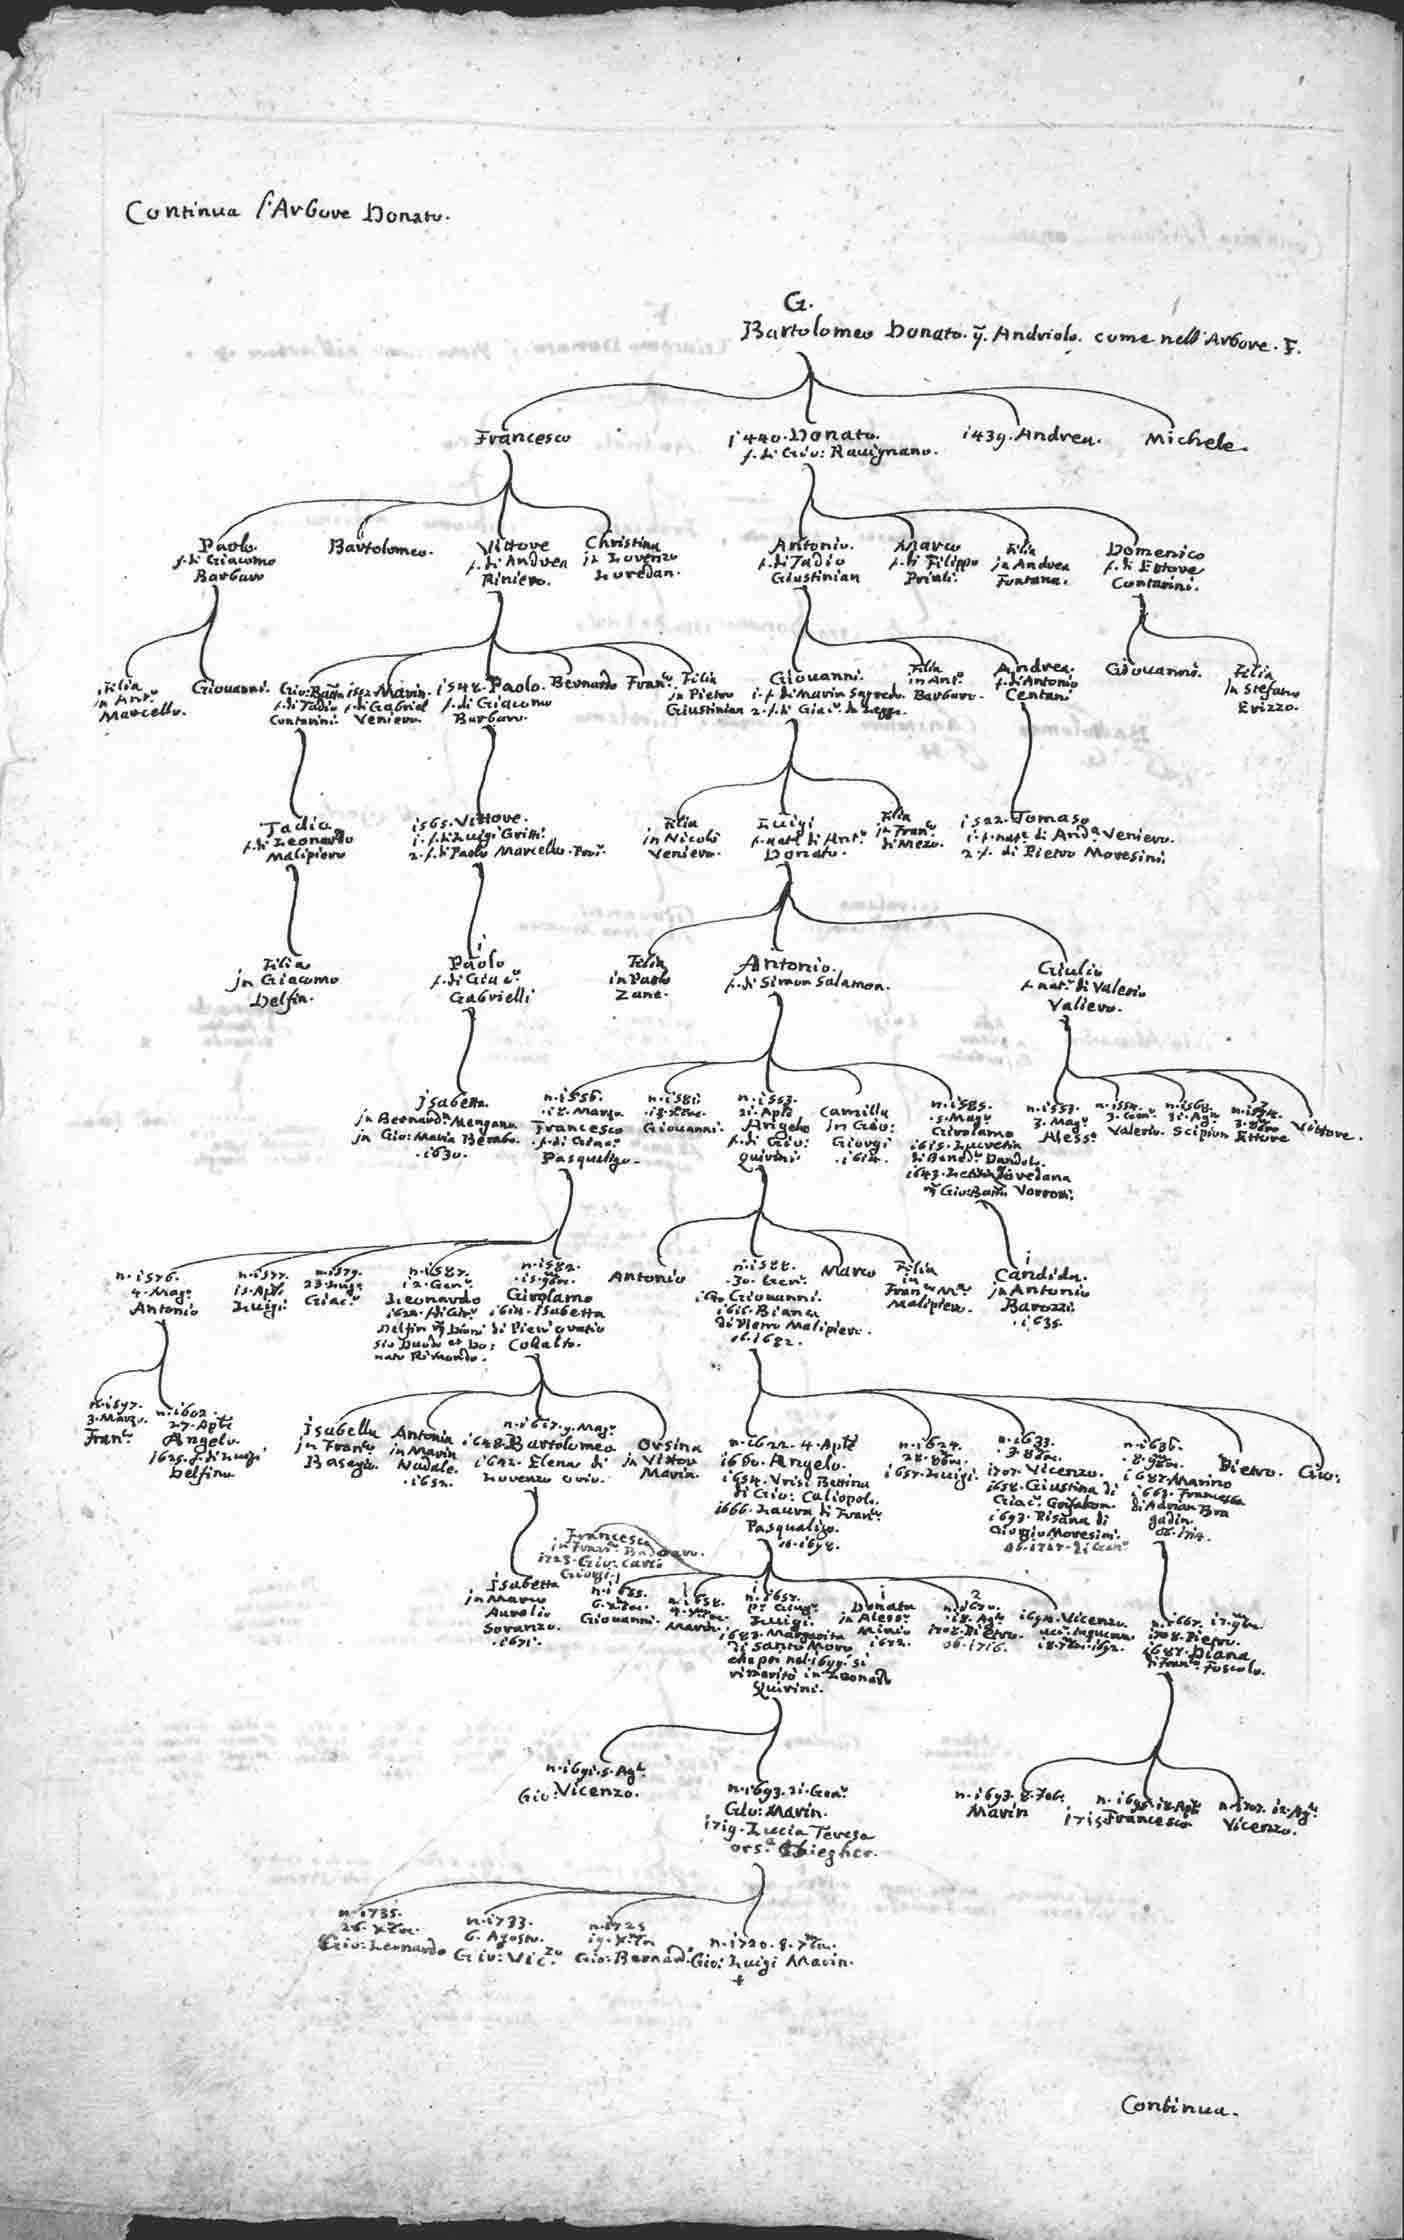 Continua l'Arbore Donato.
G.
Bartolomeo Donato. q. Andriolo. come nell'Arbore. F.
Francesco
1440. Donato.
f. di Gio: Ravignano.
1439. Andrea.
Michele.
Paolo.
f. di Giacomo
Barbaro
Bartolomeo.
Vittore
f. di Andrea
Riniero.
Christina
in Lorenzo
Loredan.
Antonio.
f. di Tadio
Giustinian
Marco
f. di Filippo
Priuli.
Filia
in Andrea
Fontana.
Domenico
f. di Ettore
Contarini.
Filia
in Ant.º
Marcello.
Giovanni.
Gio: Batta
f. di Tadio
Contarini
1512. Marin.
f. di Gabriel
Veniero.
1548. Paolo.
f. di Giacomo
Barbaro.
Bernardo
Fran.º
Filia
in Pietro
Giustinian
Giovanni.
1. f. di Marin Sagredo.
2. f. di Giac.º da Lezze.
Filia
in Ant.º
Barbaro.
Andrea.
f. di Antonio
Centani
Giovanni.
Filia
in Stefano
Erizzo.
Tadio
f. di Leonardo
Malipiero
1565. Vittore.
1. f. di Luigi Gritti.
2. f. di Paolo Marcello.
Filia
in Nicolò
Veniero.
Luigi
f. nat. di Ant.º
Donato.
Filia
in Fran.º
di Mezo.
1522. Tomaso
1. f. nat. di And.ª Veniero.
2. f. di Pietro Moresini
Filia
in Giacomo
Delfin.
1
Paolo
f. di Giac.º
Gabrielli
Filia
in Paolo
Zane.
Antonio.
f. di Simon Salamon.
Giulio
f. nat. di Valerio
Valiero.
Isabetta.
in Bernard.º
in Gio: Maria Bembo.
1630.
n. 1556.
18. Marzo
Francesco
f. di Giac.º
Pasqualigo.
n. 1581.
Giovanni.
n. 1553.
21. Aple
Angelo
f. di Gio:
Quirini
Camilla
in Gio:
Giorgi
1614.
n. 1585.
5. Mag.º
Girolamo
1615. Lucretia
di Bened.º Dandolo.
1643. Loredana
q. Gio: Batta
n. 1553.
3. Mag.º
Aless.º
n. 1554.
3. Gen.º
Valerio.
n. 1568.
31. Ag.º
Scipion
Ettore
Vittore.
n. 1576.
4. Mag.º
Antonio
n. 1577.
15. Aple
Luigi.
n. 1579.
Giac.º
n. 1587.
12. Gen.º
Leonardo
Delfin
n. 1582.
15. 9bre.
Girolamo
1614. Isabetta
di Pietro
Cobalto.
Antonio
n. 1588.
30. Gen.º
Giovanni.
1616. Bianca
di Piero Malipiero.
ob. 1682.
Marco
Filia
in
Fran.º M.ª
Malipiero.
1
Candida.
in Antonio
Barozzi.
1635.
n. 1597.
3. Marzo.
Fran.º
n. 1602.
27. Aple
Angelo.
1625. f. di Luigi
Delfino.
Isabella
in Fran.º
Basegio.
Antonia
in Marin
Nadale.
1652.
n. 1617. 9. Mag.º
1648. Bartolomeo
1642. Elena di
Lorenzo Orio.
Orsina
in Vittor
Marin.
n. 1622. 4. Aple
1680. Angelo.
1654. Orsi Bettina
di Gio: Caliopolo.
1666. Laura di Fran.º
Pasqualigo.
ob. 1698.
n. 1624.
28. 8bre.
1657. Luigi.
n. 1633.
3. 8bre.
1707. Vicenzo.
1658. Giustina di
Giac.º
1693. Risana di
Giorgio Moresini.
ob. 1727.
n. 1636.
8. 9bre.
1687. Marino
1663. Francesca
di Adrian Bra
gadin.
ob. 1714.
Pietro.
Gio:
Francesca
in Fran.º Badoaro.
1723. Gio: Carlo
Giorgi.
Isabetta
in Marco
Aurelio
Soranzo.
1671.
n. 1655.
Giovanni.
1
n. 1658.
Marin.
1
n. 1657.
Luigi.
1687. Margarita
di Santo Moro
che poi nel 1699. si
rimaritò in Leonardo
Quirini.
1
Donata
in Aless.º
Minio
1672.
2
n. 1670.
18. Ag.º
1708. Pietro.
ob. 1716.
Vicenzo.
n. 1667. 17. 9bre
1708. Pietro.
1687. Diana
di Fran.º Foscolo.
n. 1691. 5. Ag.º
Gio: Vicenzo.
n. 1693. 21. Gen.º
Gio: Marin.
1719. Lucia Teresa
Ors.ª Ghiegher.
n. 1693. 8. 7bre.
Marin
n. 1695. 18. Aple
1715 Francesco
n. 1707. 12. Ag.º
Vicenzo.
n. 1735.
26. Xbre.
Gio: Leonardo
n. 1733.
6. Agosto.
Gio: Vic.zo
n. 1725
19. Xbre
Gio: Bernard.º
n. 1720. 8. 7bre.
Gio: Luigi Marin.
+
Continua.